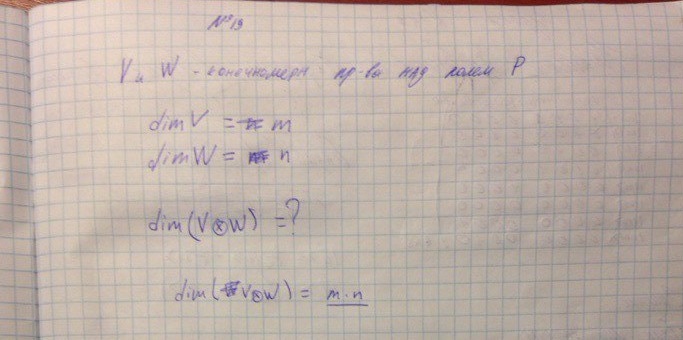 №19
V и W - конечномерн пр-ва над полем P
dim V = m
dim W = n
dim(V⊗W) = ?
dim(V⊗W) = m·n